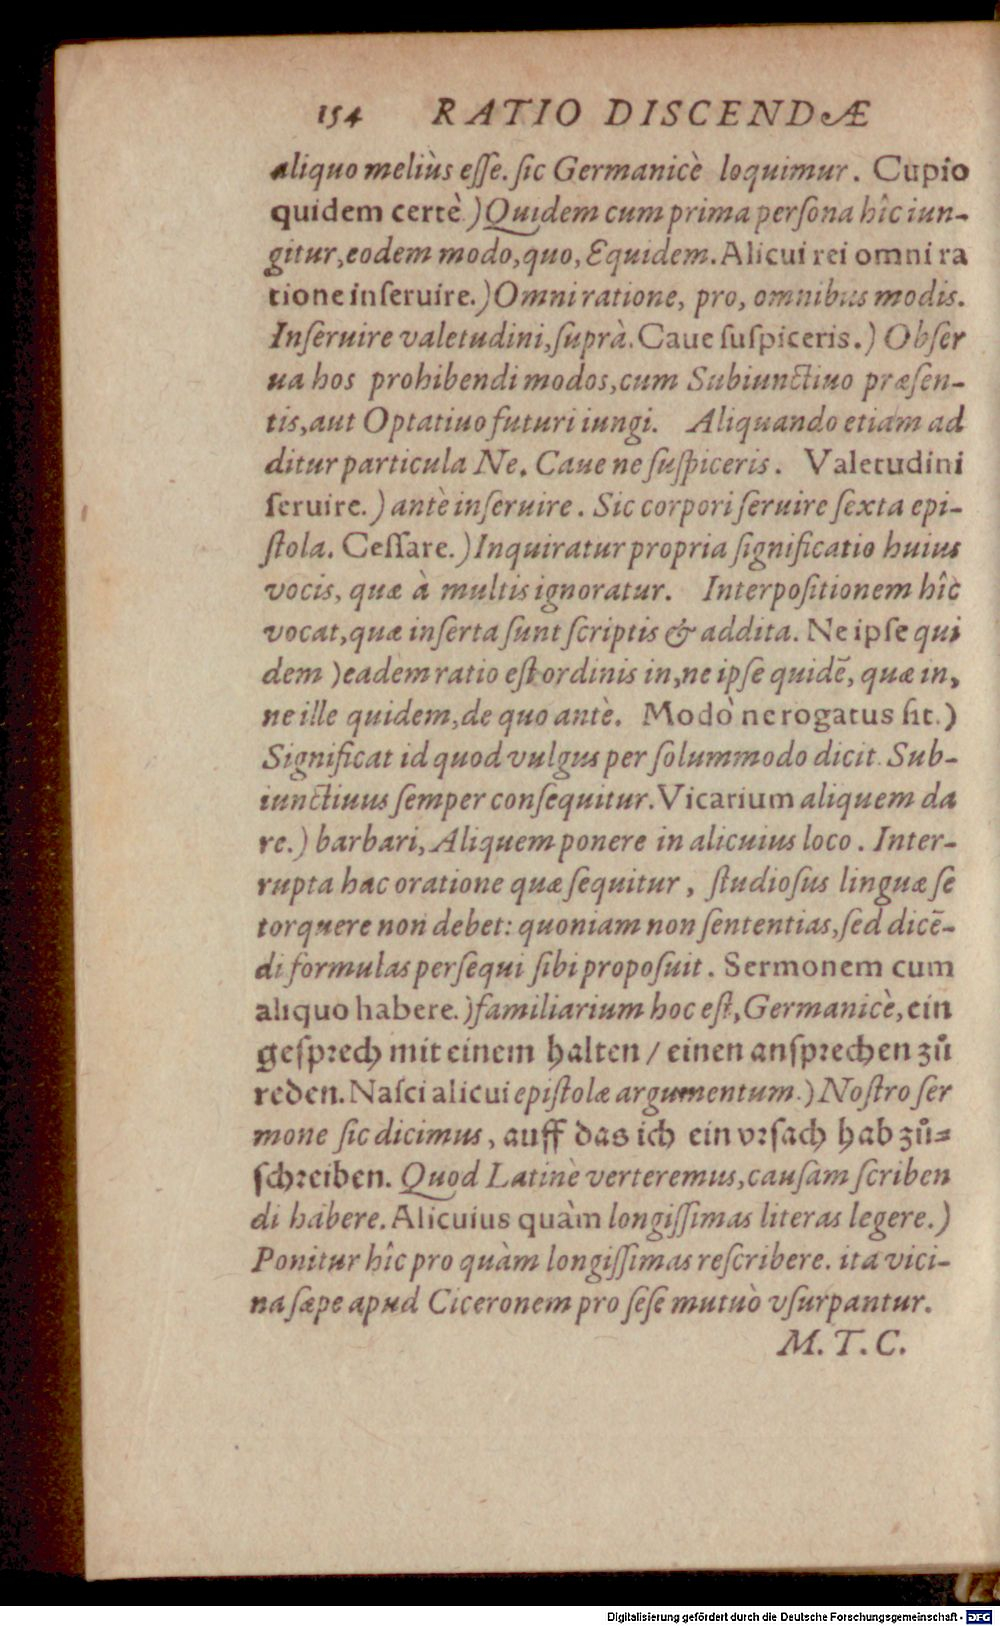 154 RATIO DISCENDÆ
aliquo meliùs esse. sic Germanicè loquimur. Cupio
quidem certè.)Quidem cum prima persona hîc iun-
gitur,eodem modo,quo,Equidem.Alicui rei omni ra
tione inseruire.)Omni ratione, pro, omnibus modis.
Inseruire valetudini,suprà.Caue suspiceris.) Obser
ua hos prohibendi modos,cum Subiunctiuo præsen-
tis,aut Optatiuo futuri iungi. Aliquando etiam ad
ditur particula Ne. Caue ne suspiceris. Valetudini
seruire.) antè inseruire. Sic corpori seruire sexta epi-
stola. Cessare.)Inquiratur propria significatio huius
vocis, quæ à multis ignoratur. Interpositionem hîc
vocat,quæ inserta sunt scriptis & addita. Ne ipse qui
dem )eadem ratio est ordinis in,ne ipse quidẽ, quæ in,
ne ille quidem,de quo antè. Modò ne rogatus sit.)
Significat id quod vulgus per solummodo dicit. Sub-
iunctiuus semper consequitur.Vicarium aliquem da
re.) barbari, Aliquem ponere in alicuius loco. Inter-
rupta hac oratione quæ sequitur, studiosus linguæ se
torquere non debet: quoniam non sententias,sed dicẽ-
di formulas persequi sibi proposuit. Sermonem cum
aliquo habere.)familiarium hoc est,Germanicè,ein
gesprech mit einem halten / einen ansprechen zů
reden.Nasci alicui epistolæ argumentum.)Nostro ser
mone sic dicimus, auff das ich ein vrsach hab zů-
schreiben. Quod Latinè verteremus,causam scriben
di habere.Alicuius quàm longissimas literas legere.)
Ponitur hîc pro quàm longissimas rescribere. ita vici-
na sæpe apud Ciceronem pro sese mutuò vsurpantur.
M. T. C.
Digitalisierung gefördert durch die Deutsche Forschungsgemeinschaft - DFG